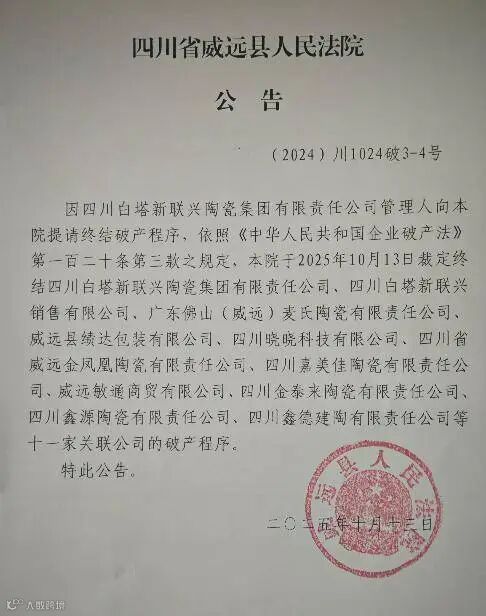 四川省威远县人民法院
公 告
（2024）川1024破3-4号
因四川白塔新联兴陶瓷集团有限责任公司管理人向本
院提请终结破产程序，依照《中华人民共和国企业破产法》
第一百二十条第三款之规定，本院于2025年10月13日裁定终
结四川白塔新联兴陶瓷集团有限责任公司、四川白塔新联兴
销售有限公司、广东佛山（威远）麦氏陶瓷有限责任公司、
威远县绩达包装有限公司、四川晓晓科技有限公司、四川省
威远金凤凰陶瓷有限责任公司、四川嘉美佳陶瓷有限责任公
司、威远敏通商贸有限公司、四川金泰来陶瓷有限责任公司、
四川鑫源陶瓷有限责任公司、四川鑫德建陶有限责任公司等
十一家关联公司的破产程序。
特此公告。
威远县人民法院
二〇二五年十月十三日
大数跨境